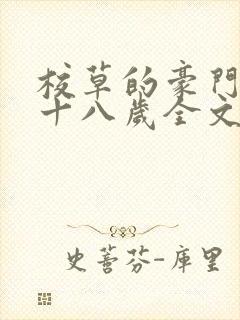 校草的豪門
十八歲全文
史蒈芬-庫里